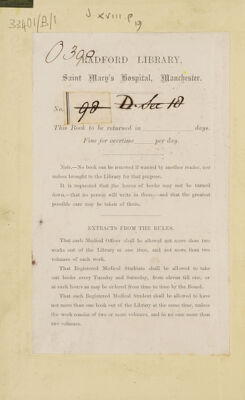 33401/B/1
J XVIII. P
19
O 390
RADFORD LIBRARY,
Saint Mary's Hospital, Manchester.
No. 98 D. Sec 18
This Book to be returned in days.
Fine for overtime per day.
Note.—No book can be renewed if wanted by another reader, nor
unless brought to the Library for that purpose.
It is requested that the leaves of books may not be turned
down,—that no person will write in them,—and that the greatest
possible care may be taken of them.
EXTRACTS FROM THE RULES.
That each Medical Officer shall be allowed not more than two
works out of the Library at one time, and not more than two
volumes of each work.
That Registered Medical Students shall be allowed to take
out books every Tuesday and Saturday, from eleven till one, or
at such hours as may be ordered from time to time by the Board.
That each Registered Medical Student shall be allowed to have
not more than one book out of the Library at the same time, unless
the work consist of two or more volumes, and in no case more than
two volumes.